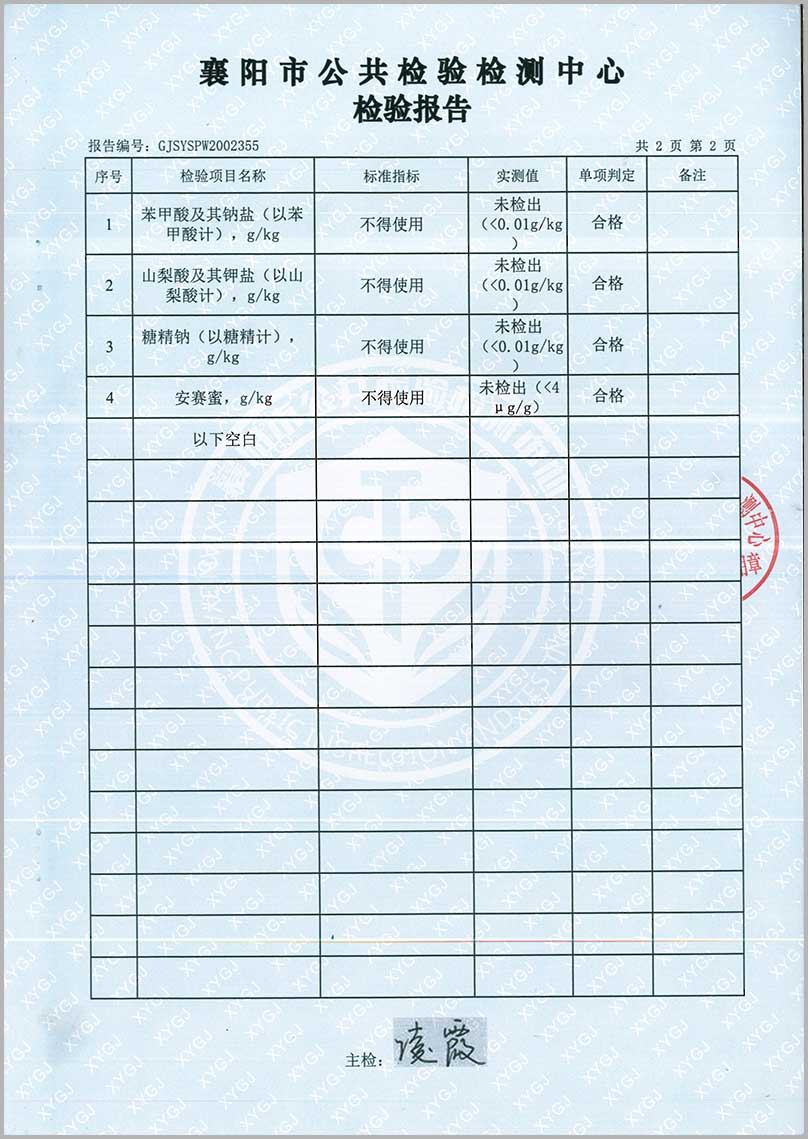 襄阳市公共检验检测中心
检验报告
报告编号：GJSYSPW2002355 共 2 页 第 2 页
序号 检验项目名称 标准指标 实测值 单项判定 备注
1 苯甲酸及其钠盐（以苯甲酸计），g/kg 不得使用 未检出（<0.01g/kg） 合格
2 山梨酸及其钾盐（以山梨酸计），g/kg 不得使用 未检出（<0.01g/kg） 合格
3 糖精钠（以糖精计），g/kg 不得使用 未检出（<0.01g/kg） 合格
4 安赛蜜，g/kg 不得使用 未检出（<4μg/g） 合格
以下空白
测中心
主检：凌霞
XYGJ